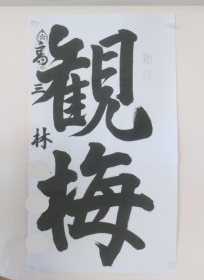 観梅
高三 林